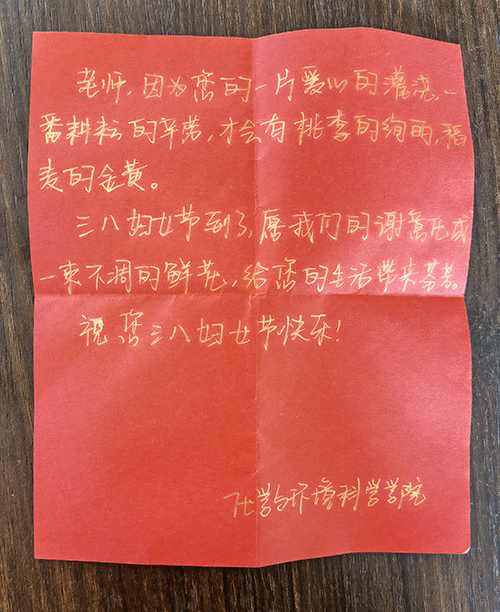 老师,因为您的一片爱心的灌浇,一
番耕耘的辛劳,才会有桃李的绚丽,稻
麦的金黄。
三八妇女节到了,愿我们的谢意化成
一束不凋的鲜花,给您的生活带来芬芳。
祝您三八妇女节快乐!
化学与环境科学学院